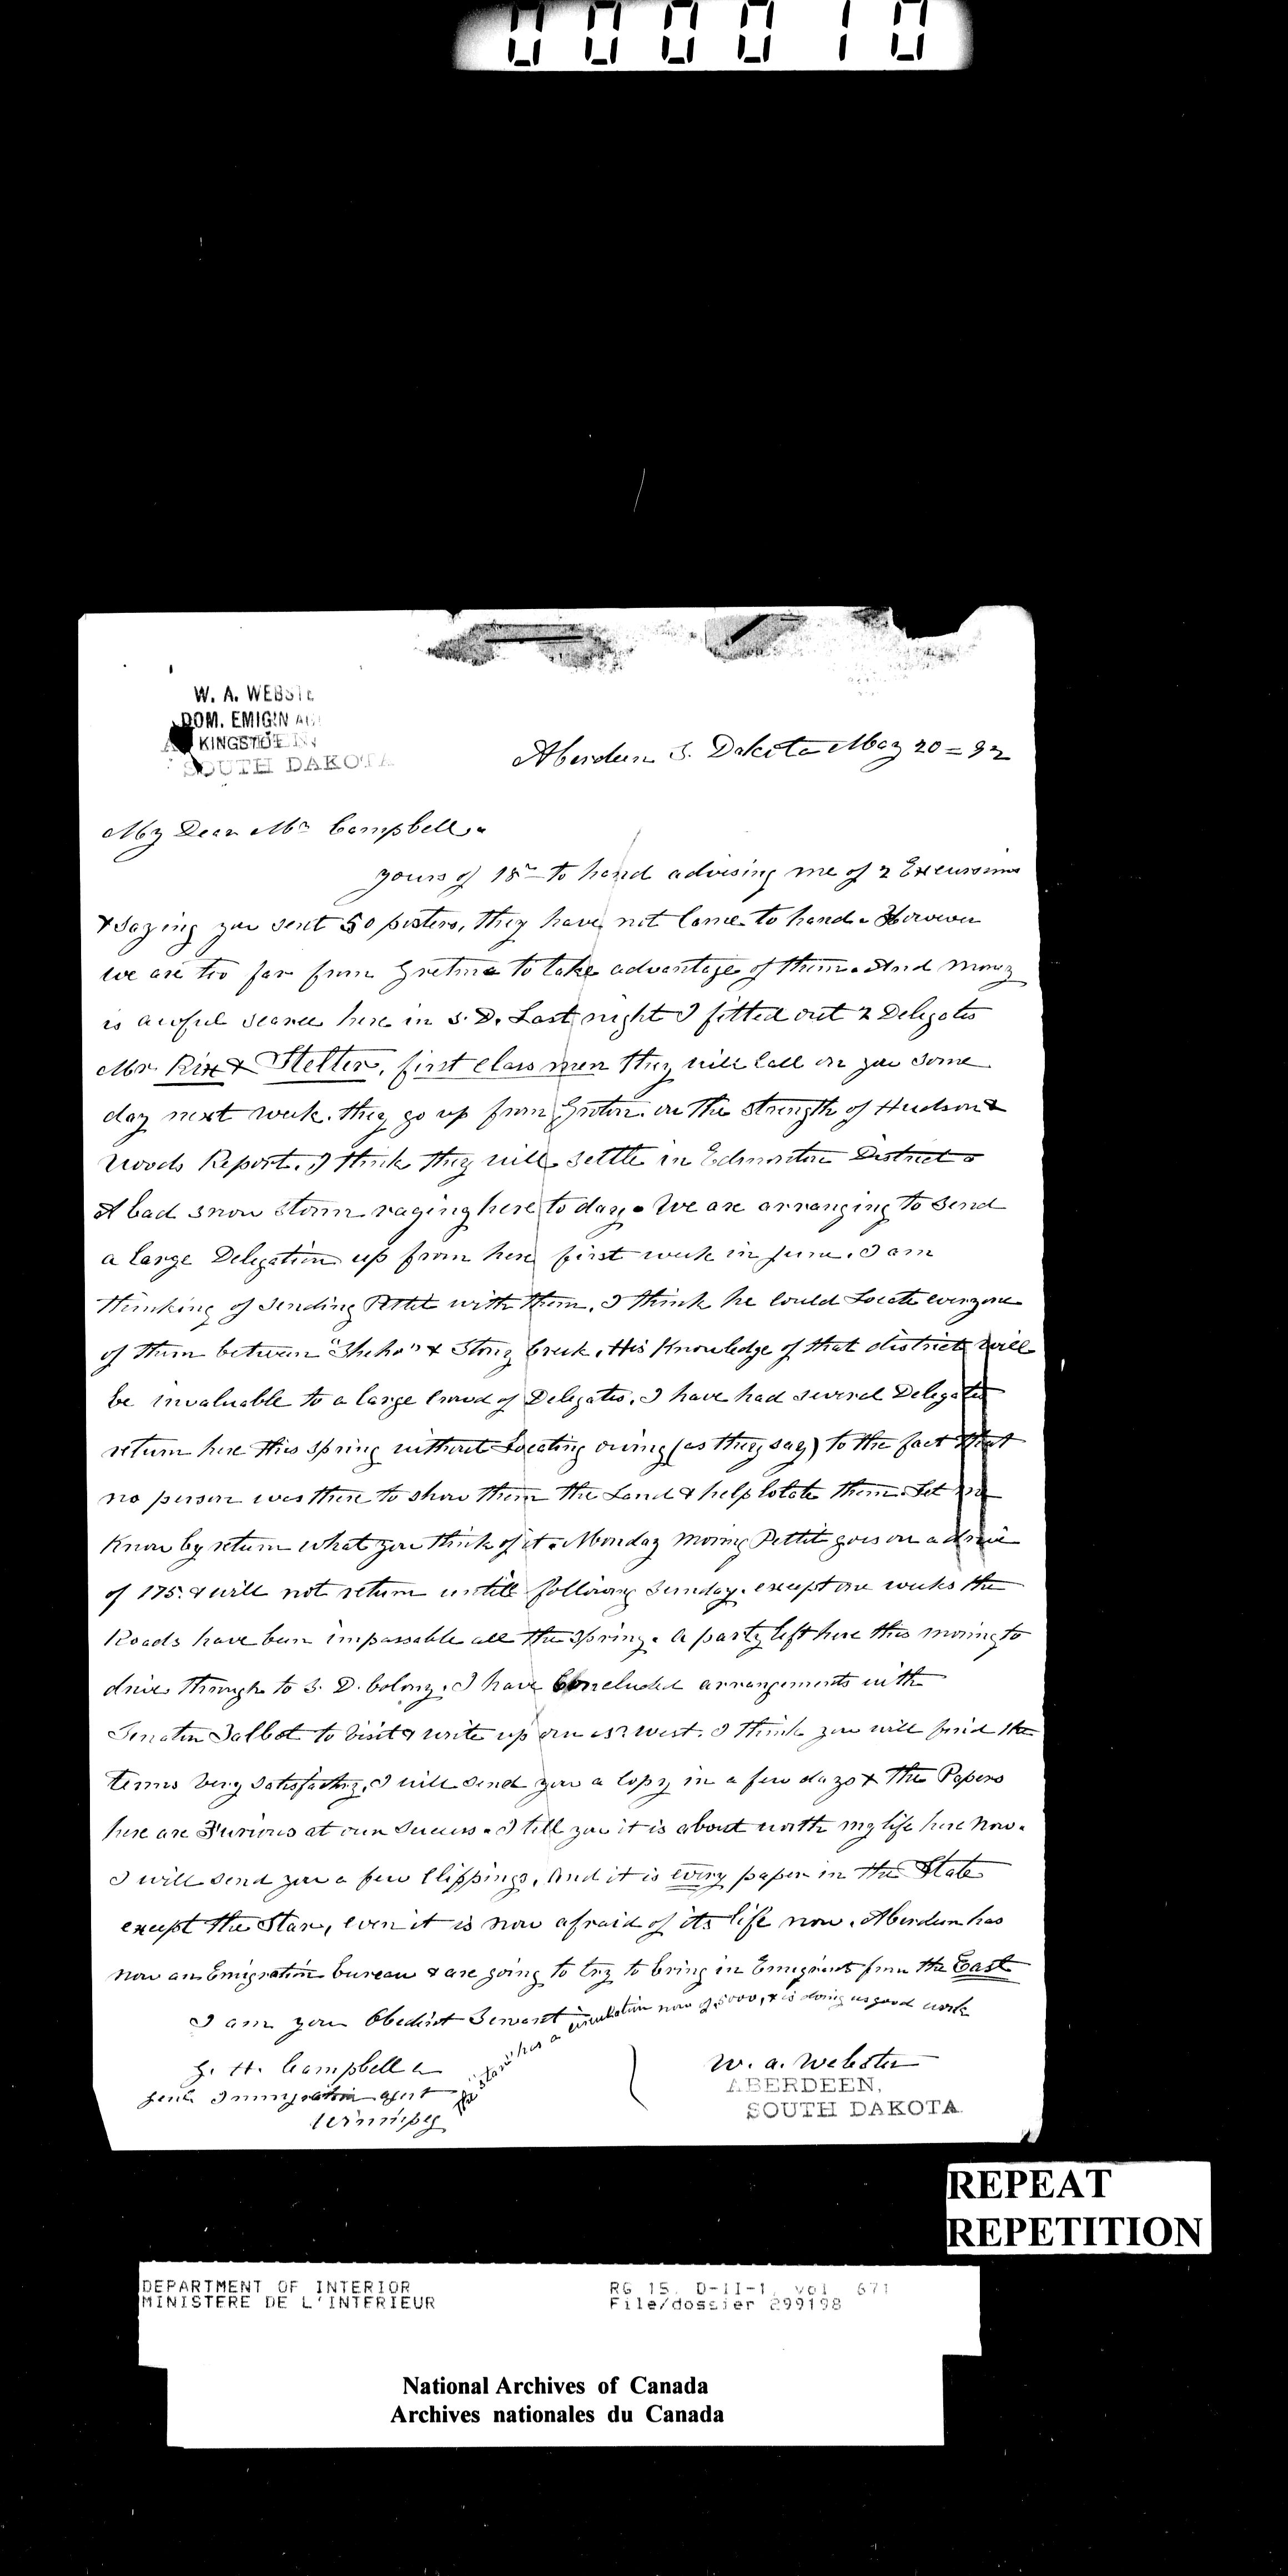 000010
W. A. WEBSTE
DOM. EMIG'N AG
KINGSTO
SOUTH DAKOTA
Aberdeen S. Dakota May 20 = 92
My Dear Mr Campbell.
yours of 18th to hand advising me of 2 Excursions
& saying you sent 50 posters, they have not Come to hand. However
we are too far from Gretna to take advantage of them. And money
is awful scarce here in S. D. Last night I fitted out 2 Delegates
Mr. Rix & Stelter, first class men they will Call on you some
day next week. they go up from Groton on the strength of Hudson &
Woods Report. I think they will settle in Edmonton District
A bad snow storm raging here to day. We are arranging to send
a large Delegation up from here first week in June. I am
thinking of sending Pettit with them. I think he Could Locate everyone
of them between "Sheho" & Stony Creek. His Knowledge of that district will
be invaluable to a large Crowd of Delegates. I have had several Delegates
return here this spring without Locating owing (as they say) to the fact that
no person was there to show them the Land & help lotate them. Let me
Know by return what you think of it. Monday moring Pettit goes on a drive
of 175. & will not return untill following Sunday. except one weeks the
Roads have been impassable all the spring. A party left here this moring to
drive through to S. D. Colony. I have Concluded arrangements with
Senator Talbot to Visit & write up our west. I think you will find the
terms Very satisfactory, I will send you a Copy in a few days & The Papers
here are Furious at our success. I tell you it is about worth my life here now.
I will send you a few Clippings, And it is every paper in the State
except the Star, even it is now afraid of its life now. Aberdeen has
now an Emigration bureau & are going to try to bring in Emigrants from the East
I am you Obedient Servant
The "Star" has a circulation now of 5000, & is doing us good work
W. A. Webster
ABERDEEN,
SOUTH DAKOTA
H. Campbell
Immigration agent
Winnipeg
REPEAT
REPETITION
DEPARTMENT OF INTERIOR
MINISTERE DE L'INTERIEUR
RG 15, D-II-1, vol. 671
File/dossier 299198
National Archives of Canada
Archives nationales du Canada